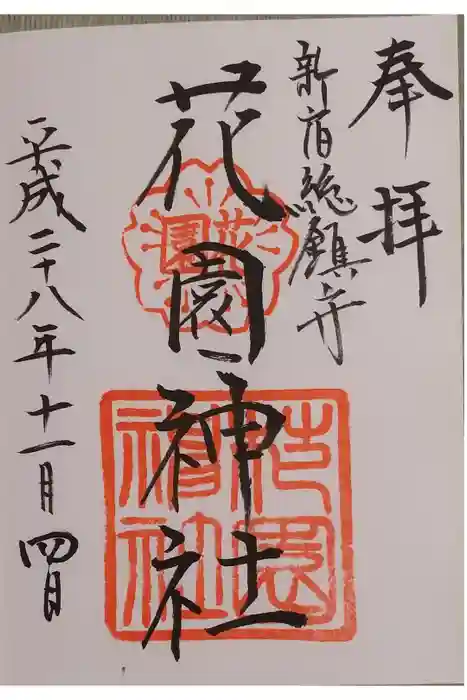 奉拝
新宿総鎮守
花園神社
平成二十八年十一月四日
花園
花園神社